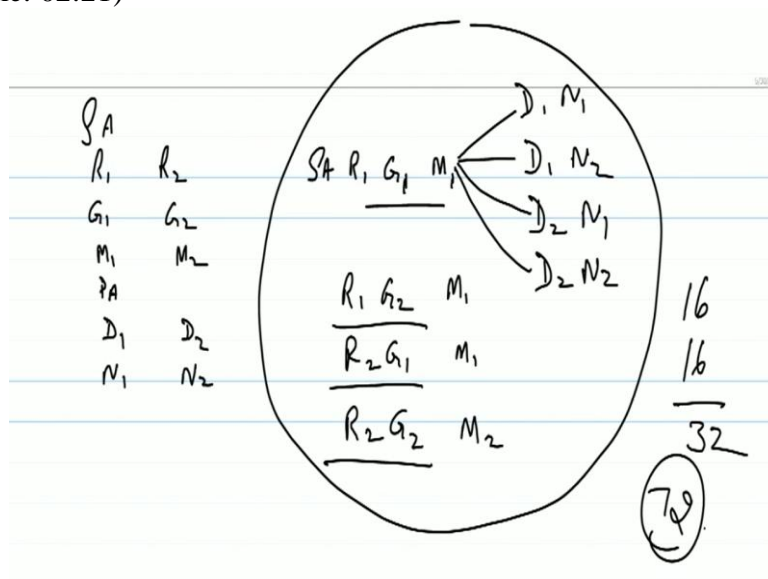 SA
R₁ R₂
G₁ G₂
M₁ M₂
PA
D₁ D₂
N₁ N₂
SA R₁ G₁ M₁
D₁ N₁
D₁ N₂
D₂ N₁
D₂ N₂
R₁ G₂ M₁
R₂ G₁ M₁
R₂ G₂ M₂
16
16
32
72